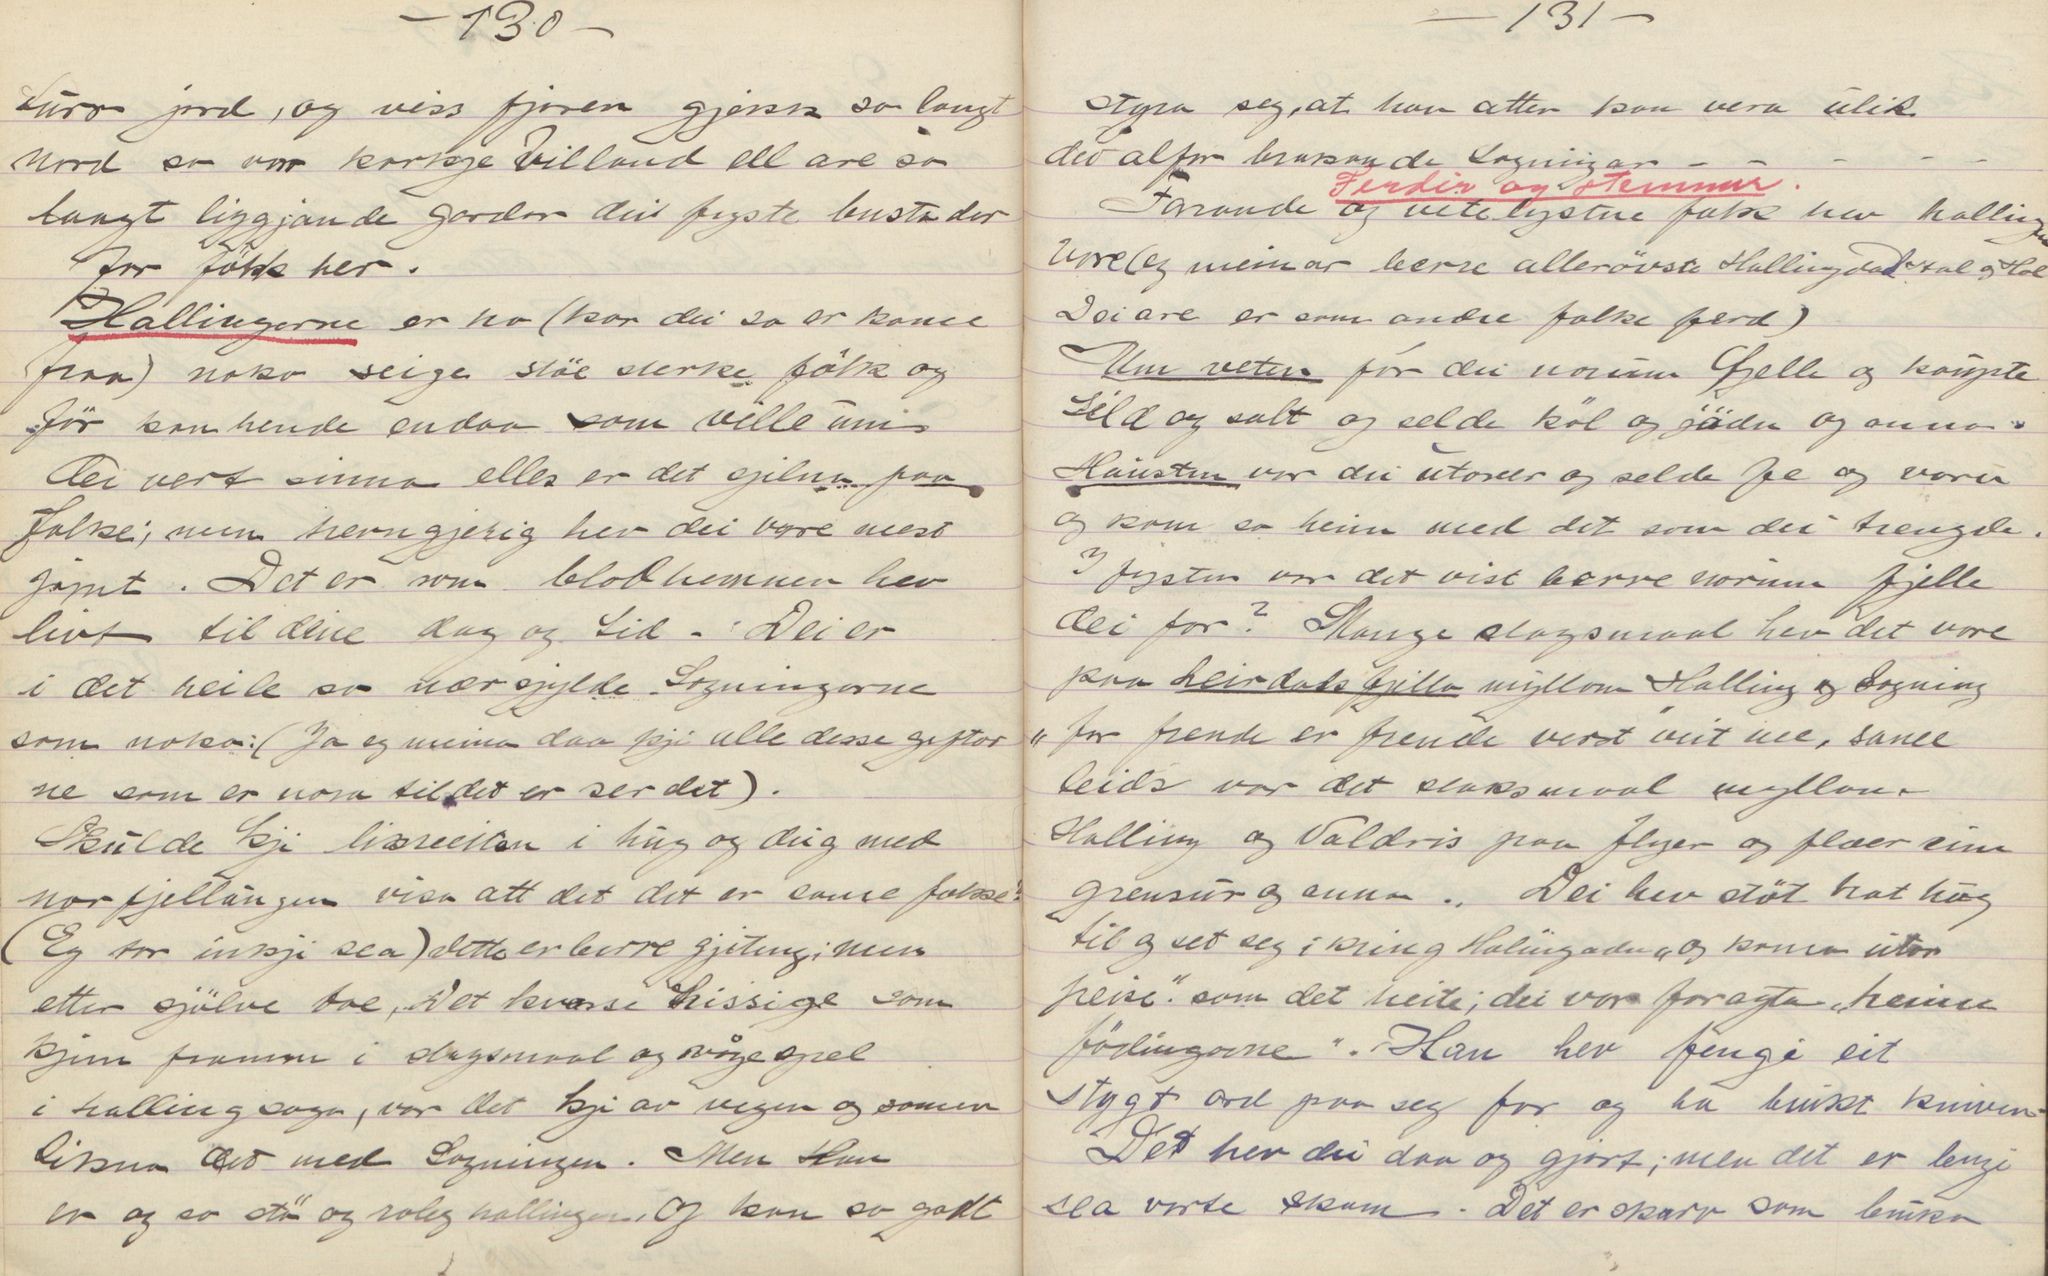 - 130 -
turr jord, og viss fjoren gjekk so langt
nord so var korkje Villand ell are so
langt liggjande gardar dei fyste bustader
for folk her.
Hallingerne er no (kor dei so er kome
fraa) noko seige stöe sterke fölk og
för kanhende endaa som ville um
dei vert sinna elles er det gjilna paa
folke; men hevngjerig hev dei vore mest
jamt. Det er som blodhemnen hev
livt til dene dag og tid - Dei er
i det heile so nærsjylde Sogningarne
som noko: (Ja eg meina daa kji alle desse giftar
ne som er nora til det er ser det).
Skulde kji lixreitta i hug og deig med
nor fjellüngen visa att det det er same folkje?
(Eg tor inkji sea) dette er berre gjiting; men
etter sjölve toe, det kvasse hissige som
kjem framm i slagsmaal og mogespel
i halling soga, var det kji av vegen og samen
likna det med Sogningen. Men Han
er og so stö og roleg hallingen, og kan so godt
- 131 -
styra seg, at han atter kan vera ülik
dei alfor brakande Sogningar - - - - -
Ferdir og stemnur.
Farande og vetelystne folk hev halling
vore (eg meinar berre allerövste Hallingdal. Aal og Hol
Dei are er som andre folke ferd)
Um veten fór dei norüm fjelle og kaupte
Sild og salt og selde köl og jädn og anna.
Haüsten var dei ütover og selde fe og varer
og kom so heim med det som dei trengde.
I fysten var det vist berre norüm fjelle
dei for? Mange slagsmaal hev det vore
paa heirdals fjello myllom Halling og Sogning
"for frende er frende verst" veit me, same
leids var det slaksmaal myllom
Halling og Valdris paa flyer og flæer eine
grensur og anna .. Dei hev stöt hat hüg
til og set seg i kring Halüngadn "og koma ütor
peise". som det heite; dei vor foragta "heime
födingarne". Han hev fengi eit
stygt ord paa seg for og ha brükt kniven-
Det hev dei daa og gjort; men det er lengi
sea vorte skam. Det er skarv som brüka